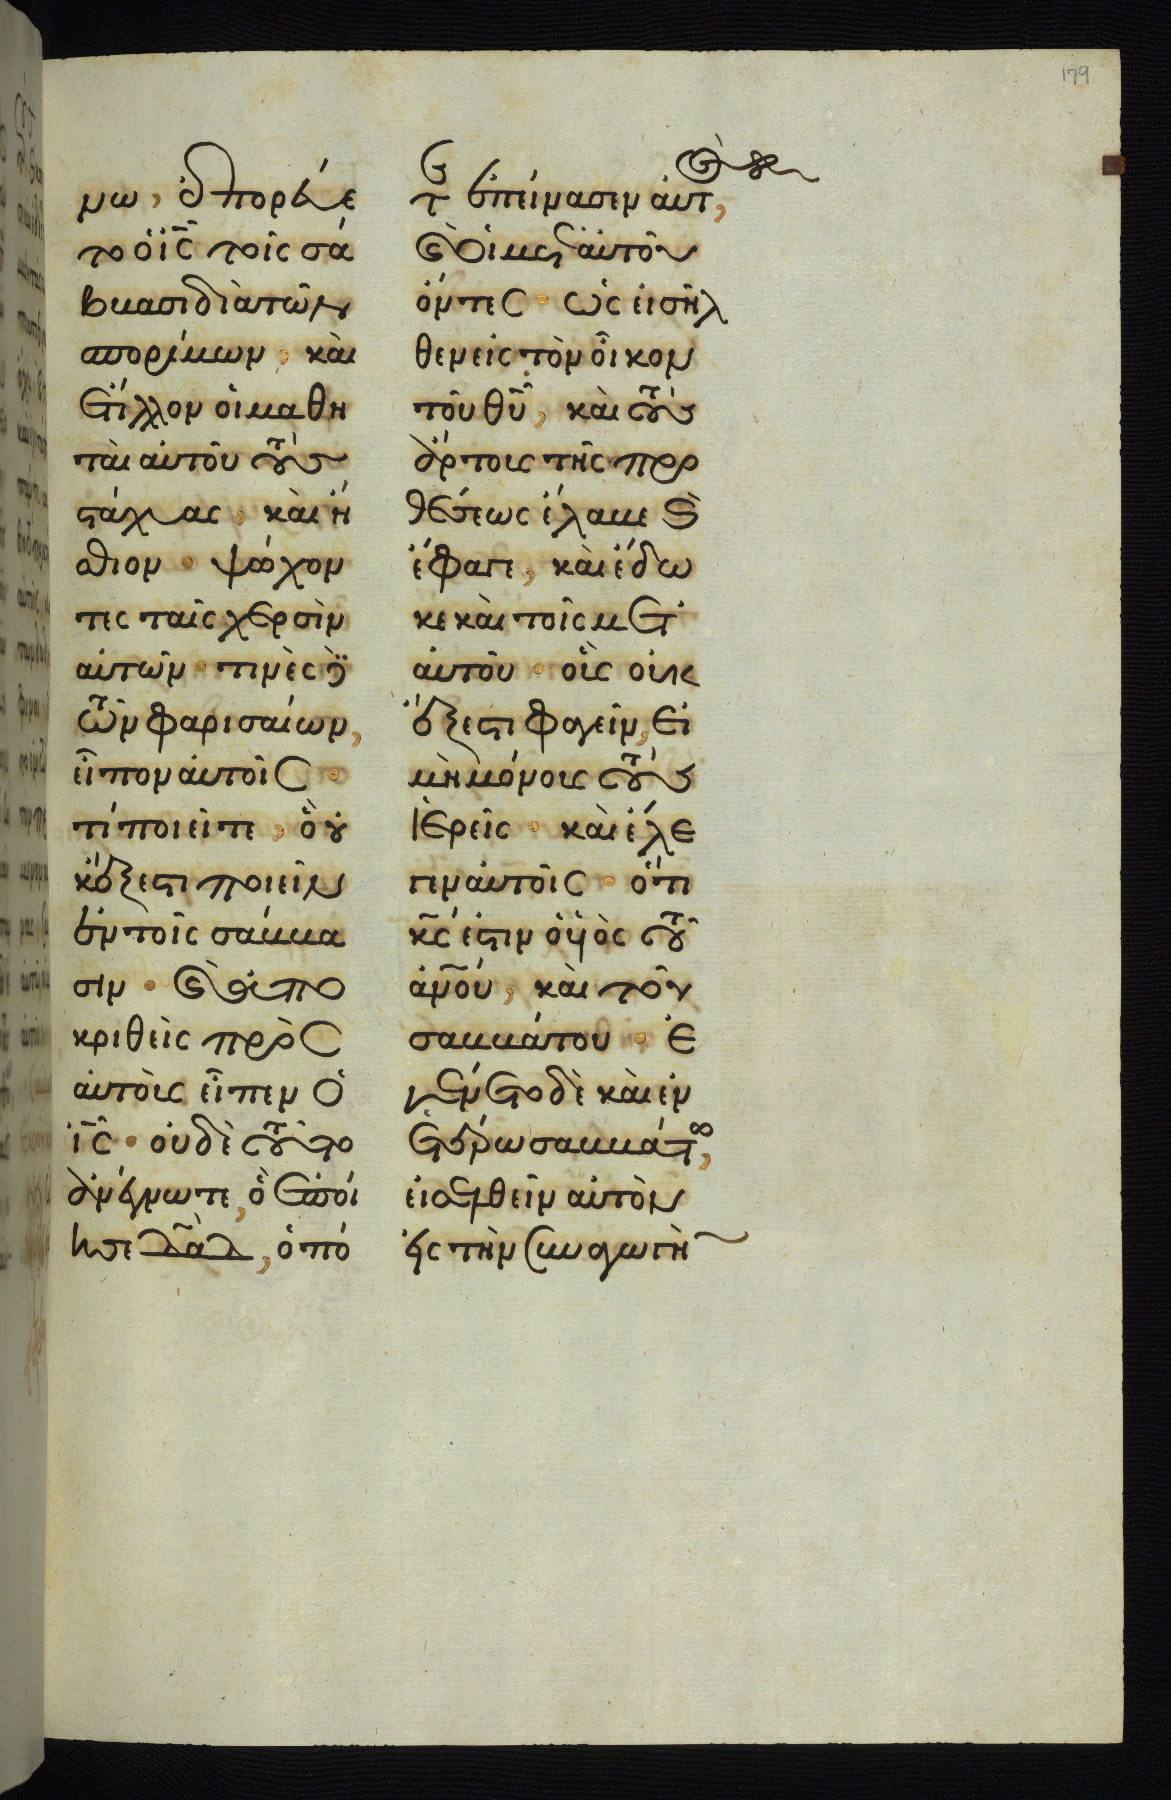 179
μω, ἐπορεύε
το ὁ ἰ̅ς̅ τοῖς σά
ββασι διὰ τῶν
σπορίμων, καὶ
ἔτιλλον οἱ μαθη
ταὶ αὐτοῦ τοὺς
στάχυας, καὶ ἤ
σθιον · ψώχον
τες ταῖς χερσὶν
αὐτῶν · τινὲς δὲ
τῶν φαρισαίων,
εἶπον αὐτοῖς ·
τί ποιεῖτε, ὃ οὐ
κ ἔξεστι ποιεῖν
ἐν τοῖς σάββα
σιν · καὶ ἀπο
κριθεὶς πρὸς
αὐτοὺς εἶπεν ὁ
ἰ̅ς̅ · οὐδὲ τοῦτο
ἀνέγνωτε, ὃ ἐποί
ησε δ̅α̅δ̅, ὁπό
τε ἐπείνασεν αὐτὸς,
καὶ οἱ μετ' αὐτοῦ
ὄντες · ὡς εἰσῆλ
θεν εἰς τὸν οἶκον
τοῦ θ̅υ̅, καὶ τοὺς
ἄρτους τῆς προ
θέσεως ἔλαβε καὶ
ἔφαγε, καὶ ἔδω
κε καὶ τοῖς μετ'
αὐτοῦ · οἷς οὐκ
ἔξεστι φαγεῖν, εἰ
μὴ μόνους τοὺς
ἱερεῖς · καὶ ἔλε
γεν αὐτοῖς · ὅτι
κ̅ς̅ ἐστιν ὁ υἱὸς τοῦ
ἀν̅ου, καὶ τοῦ
σαββάτου · ἐ
γένετο δὲ καὶ ἐν
ἑτέρω σαββάτω,
εἰσελθεῖν αὐτὸν
εἰς τὴν συναγωγὴν